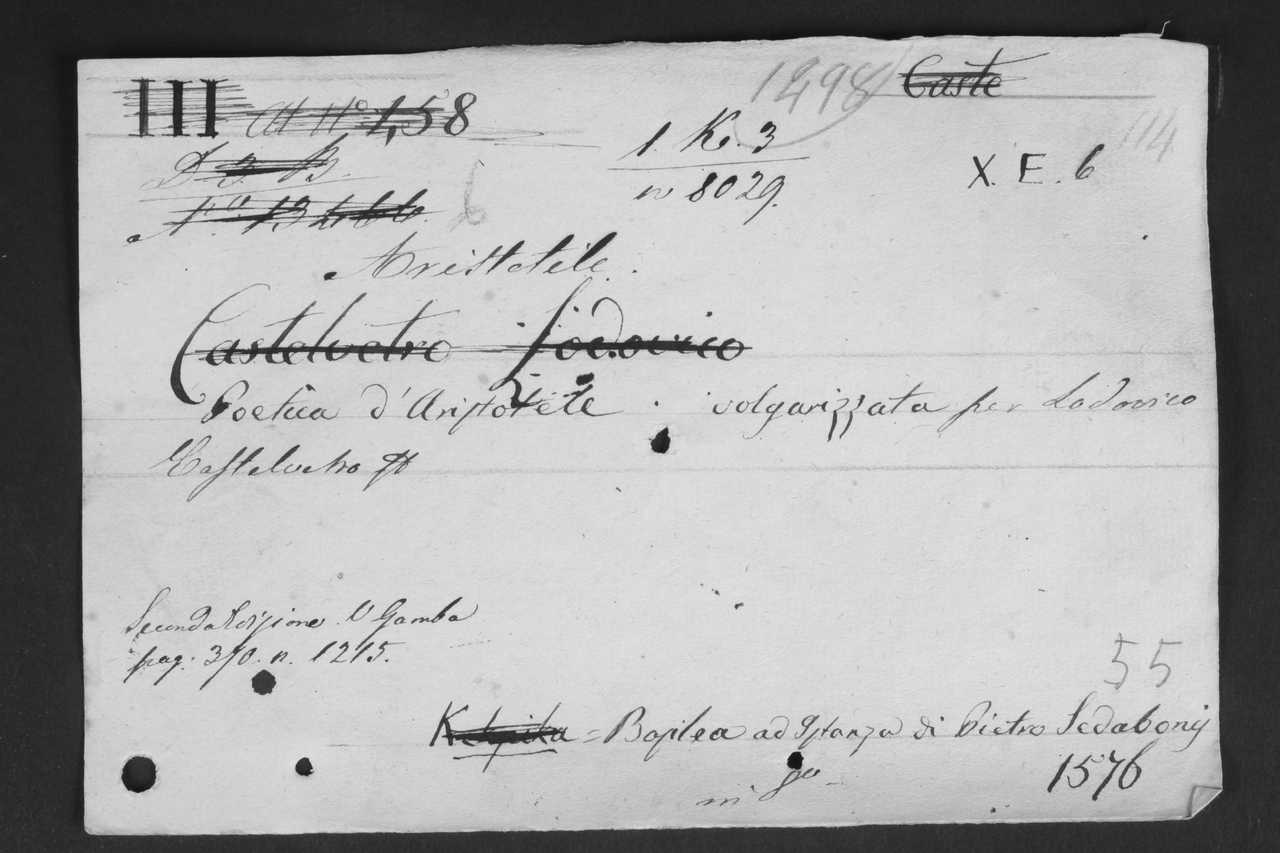 III 1,58
1298
Caste
114
D 3. B.
1 K. 3
X. E. 6
N.º 13466
6
n 8029.
Aristotile.
Castelvetro Lodovico
Poetica d'Aristotele. volgarizzata per Lodovico
Castelvetro
Seconda Edizione. V Gamba
pag: 370. n. 1215.
55
= Basilea ad Istanza di Pietro Sedabonij
1576
in 4º